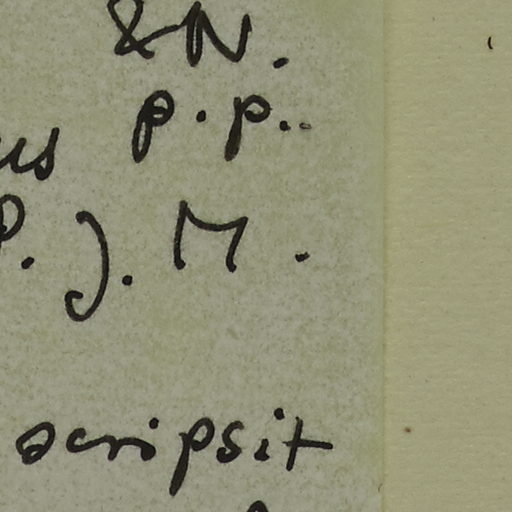 & N.
p.p..
us
P. J. M.
scripsit